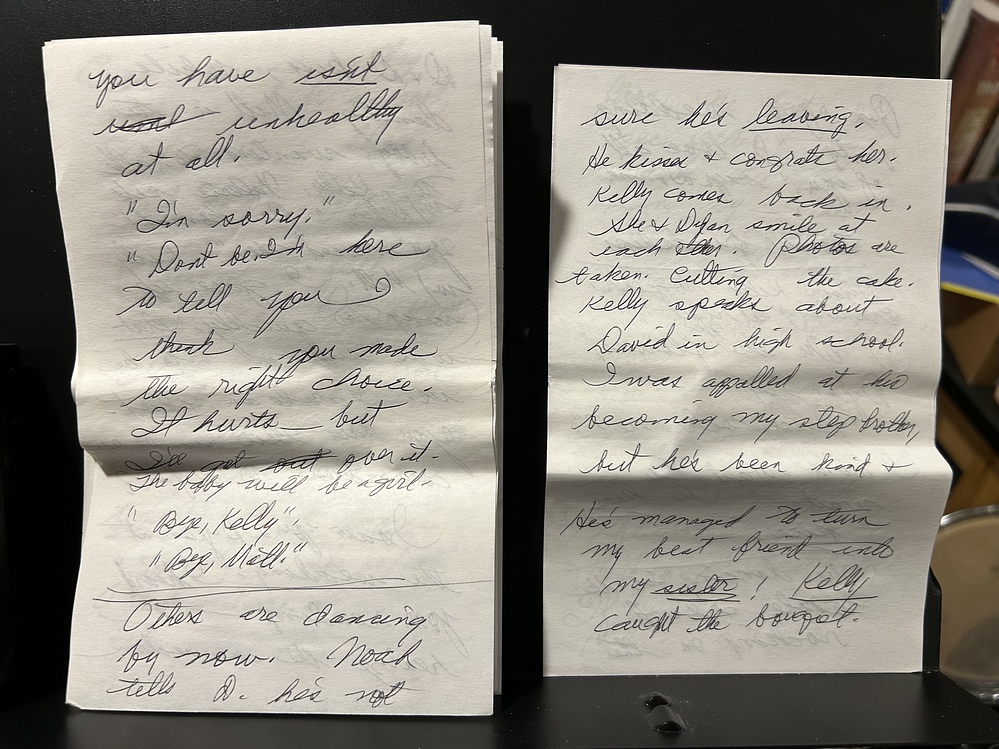 you have isn't
isn't unhealthy
at all.
"I'm sorry."
"Don't be. I'm here
to tell you I
think you made
the right choice.
It hurts — but
I'll get out over it.
The baby will be a girl.
"Bye, Kelly".
"Bye, Matt."
Others are dancing
by now. Noah
tells D. he's not
sure he's leaving.
He kisses & congrats her.
Kelly comes back in.
She & Dylan smile at
each other. Photos are
taken. Cutting the cake.
Kelly speaks about
David in high school.
I was appalled at his
becoming my step brother,
but he's been kind &
He's managed to turn
my best friend into
my sister! Kelly
caught the bouquet.